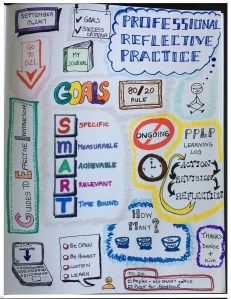 SEPTEMBER
GOALS
SUCCESS
CRITERIA
PROFESSIONAL
REFLECTIVE
PRACTICE
GO
TO
D2L
MY
JOURNAL
GOALS
80/20
RULE
GUIDES TO EFFECTIVE INSTRUCTION
SMART
SPECIFIC
MEASURABLE
ACHIEVABLE
RELEVANT
TIME BOUND
ONGOING
PPLP
LEARNING
LOG
ACTION
REVISION
REFLECTION
HOW
MANY?
THANKS
BE OPEN
BE HONEST
LISTEN
LEARN
TO DO